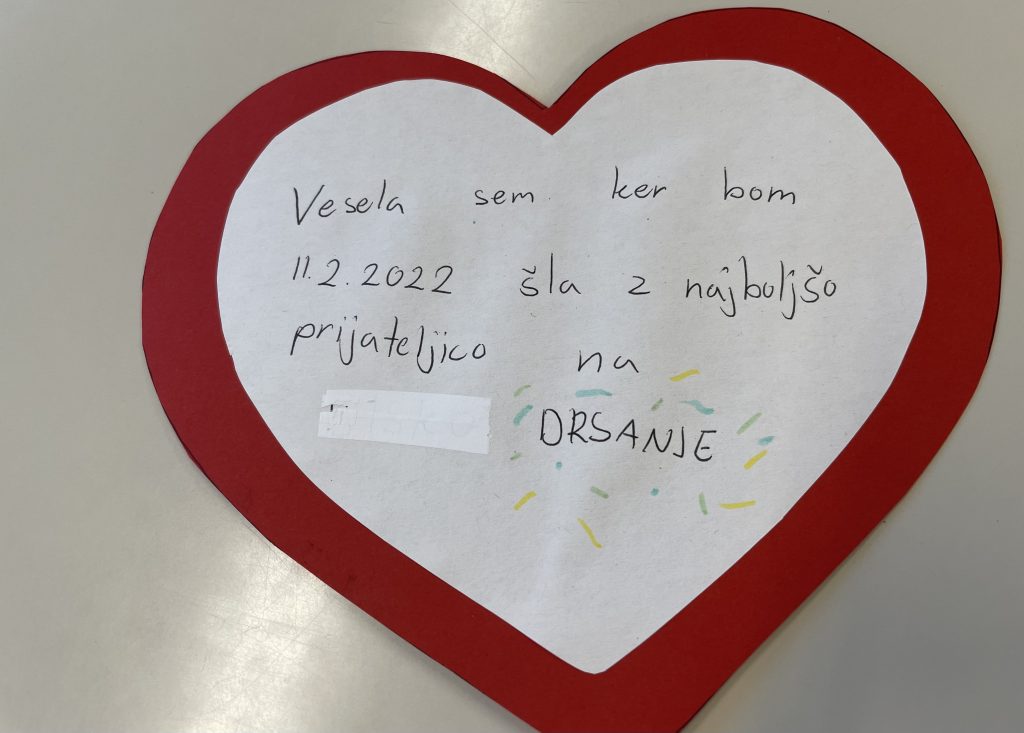 Vesela sem ker bom
11.2.2022 šla z najboljšo
prijateljico na
DRSANJE